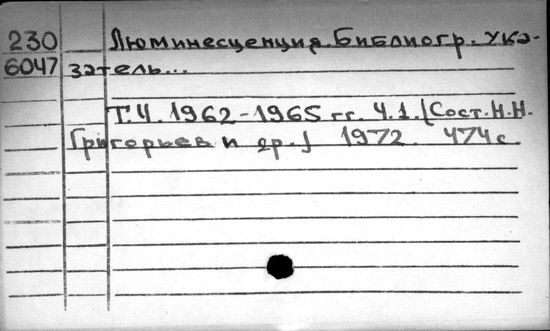 230 Люминесценция. Библиогр. ука-
6047 затель...
Т.4. 1962-1965 гг. Ч.1. [Сост. Н.Н.
Григорьев и др.] 1972. 474 с.